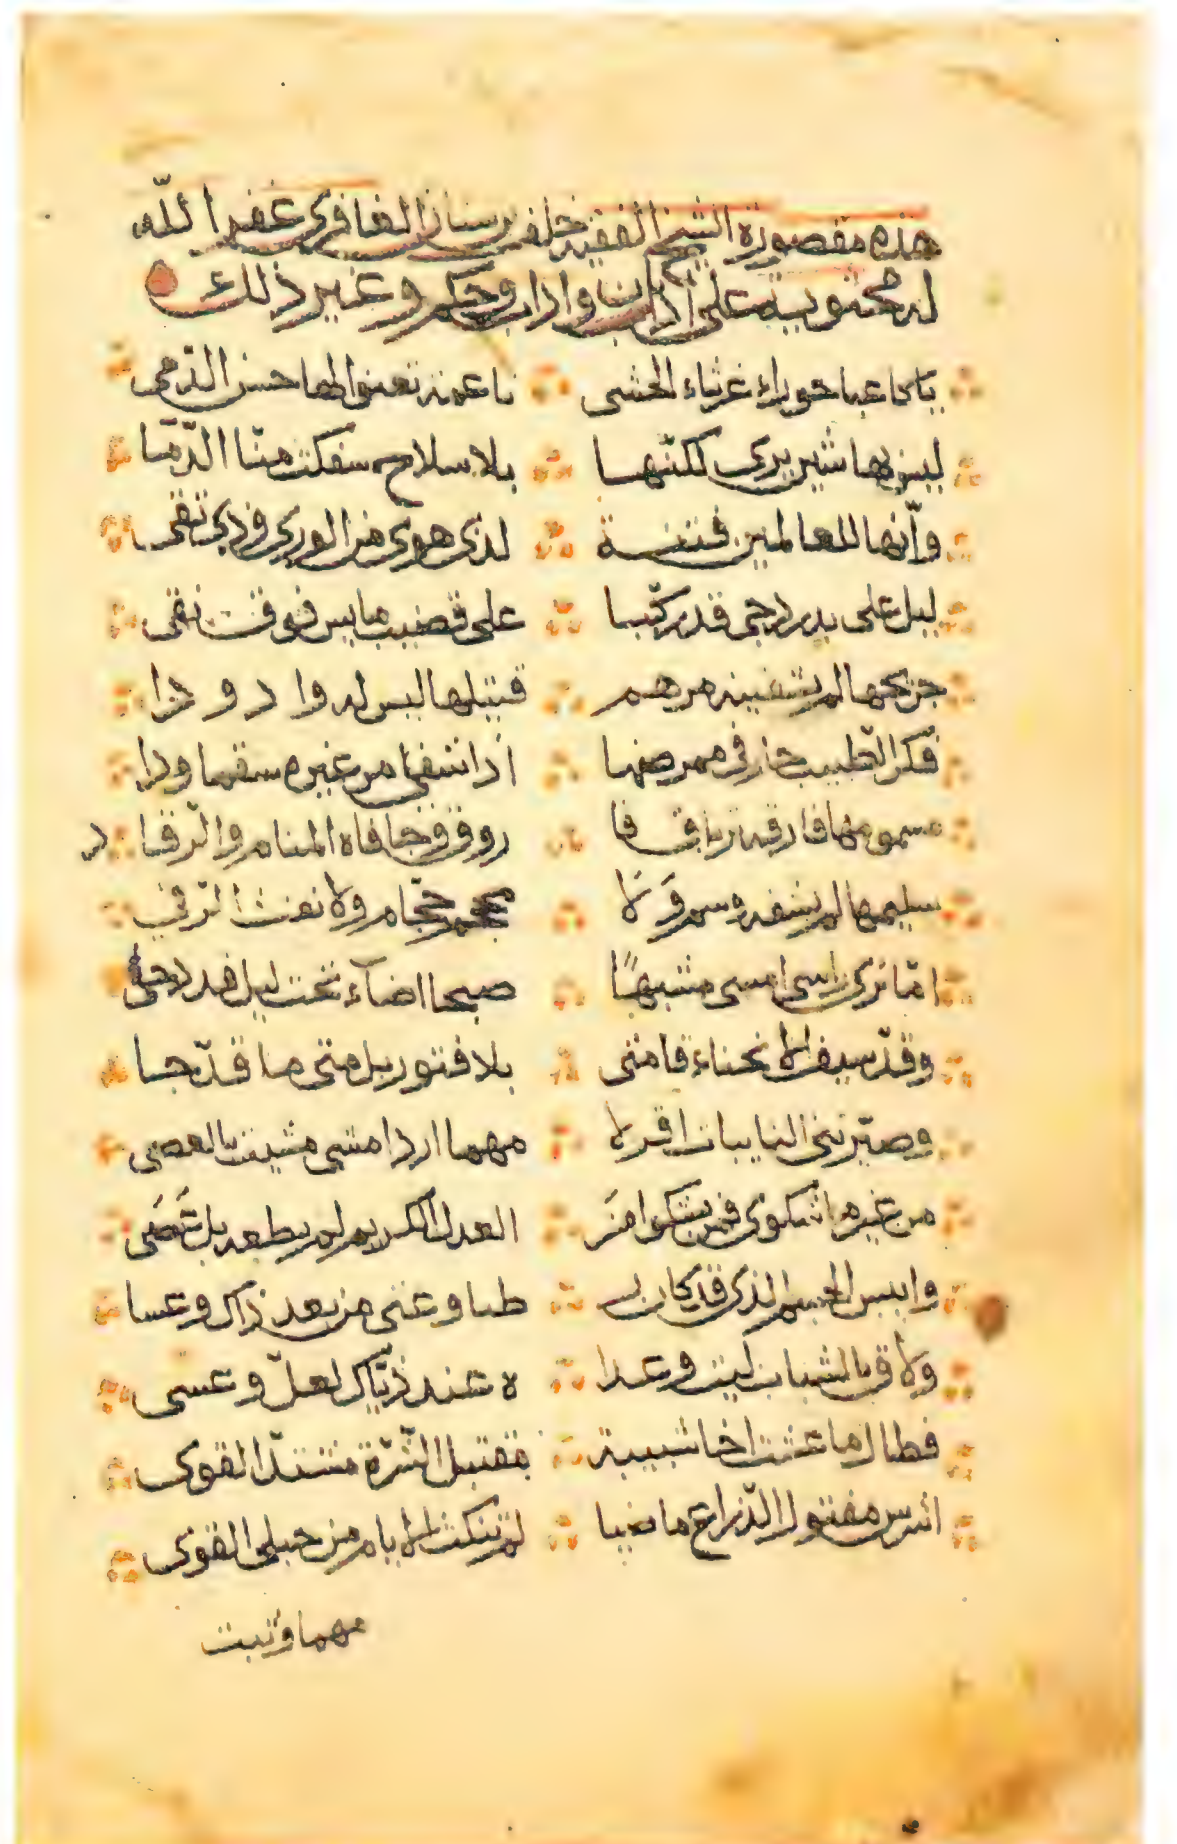 هذه مقصورة الشيخ الفقيه خلف بن سنان الغافري غفر الله
له محتوية على اديان واداب وحكم وغير ذلك
يا كاعبا حوراء غرثاء الحشى ناعمة تعنوا لها حسن الدمى
ليس بها شين يرى لكنها بلا سلاح سفكت منا الدما
وانها للعالمين فتنة لذي هوى من الورى وذي تقى
ليل على بدر دجى قد ركبا على قضيب مايس فوق نقى
جريحها لم يشفينه مرهم قتيلها ليس له وا د و دا
فكر الطبيب حار في ممرضها اذا شفى من غيره سقما ودا
مسمومها فارقه ترياق فا روق وجافاه المنام والرقا د
سليمها لم يشفه وسم ولا محجم حجام ولا نفث الرقى
اما ترى راسي امسى مشبها صبحا اضآء تحت ليل قد دجى
وقد سيف الانحناء قامتي بلا فتور بل متى ما قد جسا
وصيرتني النايبات اقزلا مهما ارد امشي مشيت بالعصى
من غيره اشكوى فمن يشكوا من العدل الكريم لم يطعه بل عصى
وايبس الجسم الذي قد كان بي طبا وعني من بعد ذاك وعسا
ولاق بالشباب ليت وعدا ه عند ذياك لعل وعسى
فطال ما عشت اخا شبيبة مقتبل الشرة مشتد القوى
اشرس مفتول الذراع ماضيا لم تنكث الايام من حبلي القوى
مهما وثبت